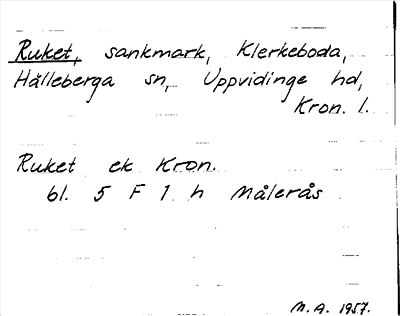 Ruket, sankmark, Klerkeboda,
Hälleberga sn, Uppvidinge hd,
Kron. l.
Ruket ek Kron.
bl. 5 F 1 h Målerås
M.A. 1957.